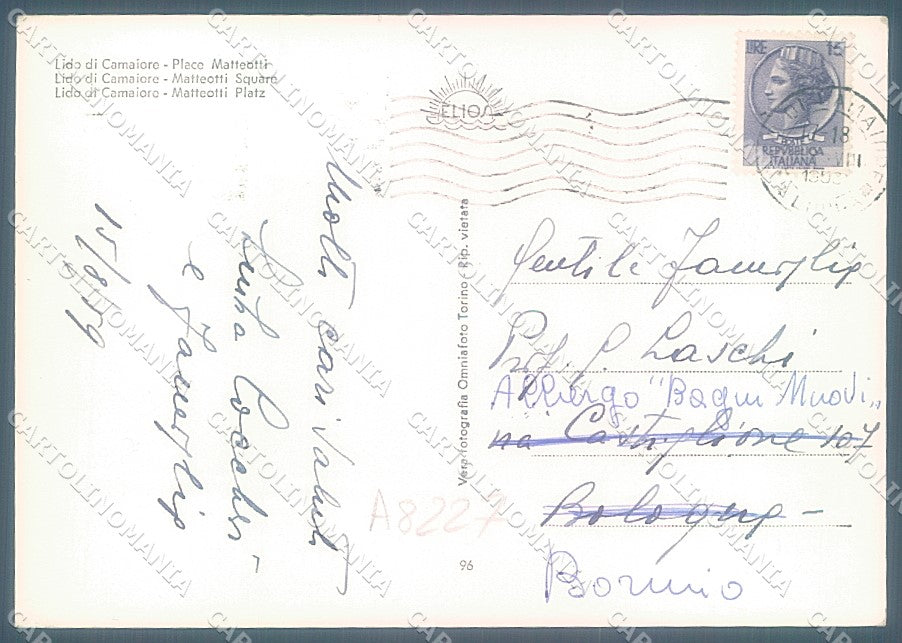 Lido di Camaiore - Place Matteotti
Lido di Camaiore - Matteotti Square
Lido di Camaiore - Matteotti Platz
ELIOS
LIRE 15
REPVBBLICA
ITALIANA
18
Molti cari saluti
e famiglia
15/8/59
Vera fotografia Omniafoto Torino - Rip. vietata
96
Gentile Famiglia
Prof. Laschi
Albergo "Bagni Nuovi"
via Castiglione 107
Bologna -
Bormio
A8227
CARTOLINOMANIA